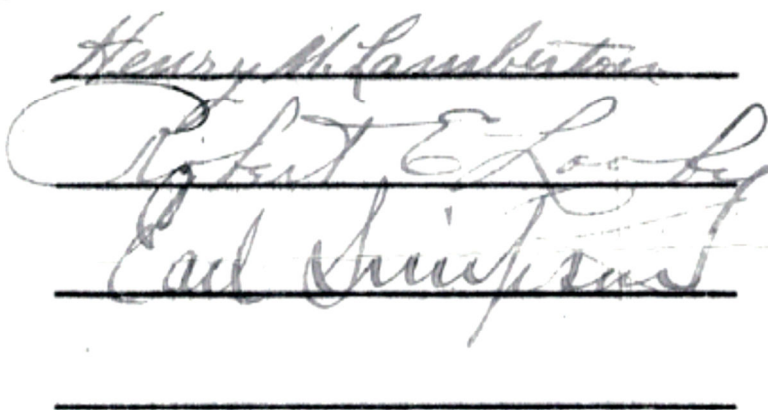 Henry M. Lamberton
Robert E. Looby
Earl Simpson